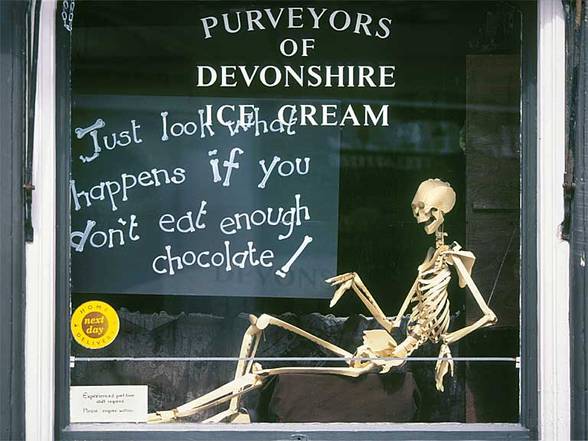 PURVEYORS
OF
DEVONSHIRE
ICE CREAM
Just look what
happens if you
don't eat enough
chocolate!
HOME
next
day
DELIVERY
Experienced part time
staff required
Please enquire within